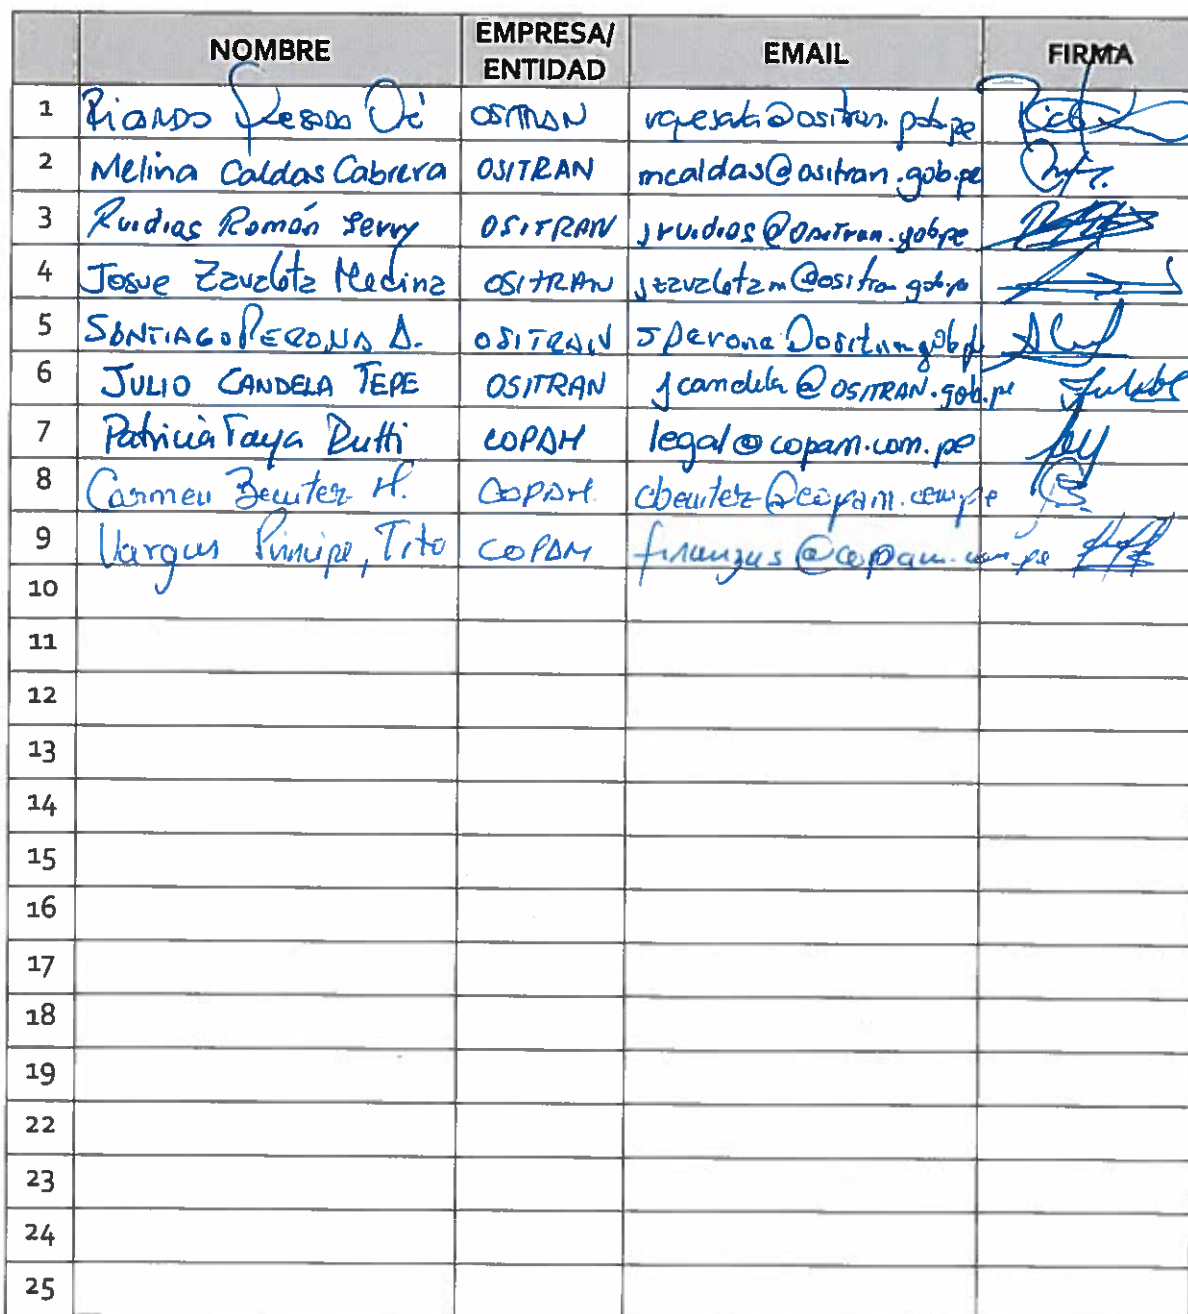 NOMBRE EMPRESA/ ENTIDAD EMAIL FIRMA
1 Ricardo Quesada Oré OSITRAN rquesada@ositran.gob.pe
2 Melina Caldas Cabrera OSITRAN mcaldas@ositran.gob.pe
3 Ruidias Román Jerry OSITRAN jruidias@ositran.gob.pe
4 Josue Zavaleta Medina OSITRAN jzavaletam@ositran.gob.pe
5 SANTIAGO PERONA A. OSITRAN sperona@ositran.gob.pe
6 JULIO CANDELA TEPE OSITRAN jcandela@OSITRAN.gob.pe
7 Patricia Taya COPAM legal@copam.com.pe
8 Carmen Benitez H. COPAM. cbenitez@copam.com.pe
9 Vargas Principe, Tito COPAM finanzas@copam.com.pe
10
11
12
13
14
15
16
17
18
19
22
23
24
25